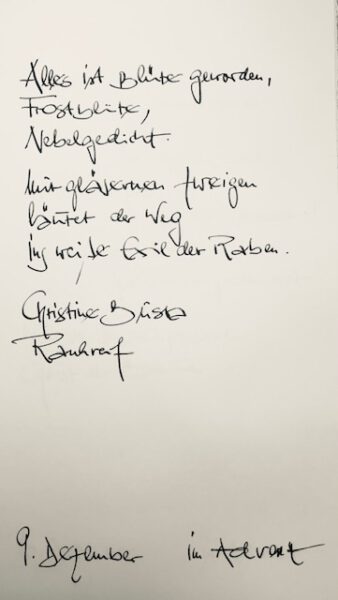 Alles ist Blüte geworden,
Frostblüte,
Nebelgedicht.
Mit gläsernen Zweigen
läutet der Weg
ins weiße Exil der Raben.
Christine Busta
Rauhreif
9. Dezember im Advent